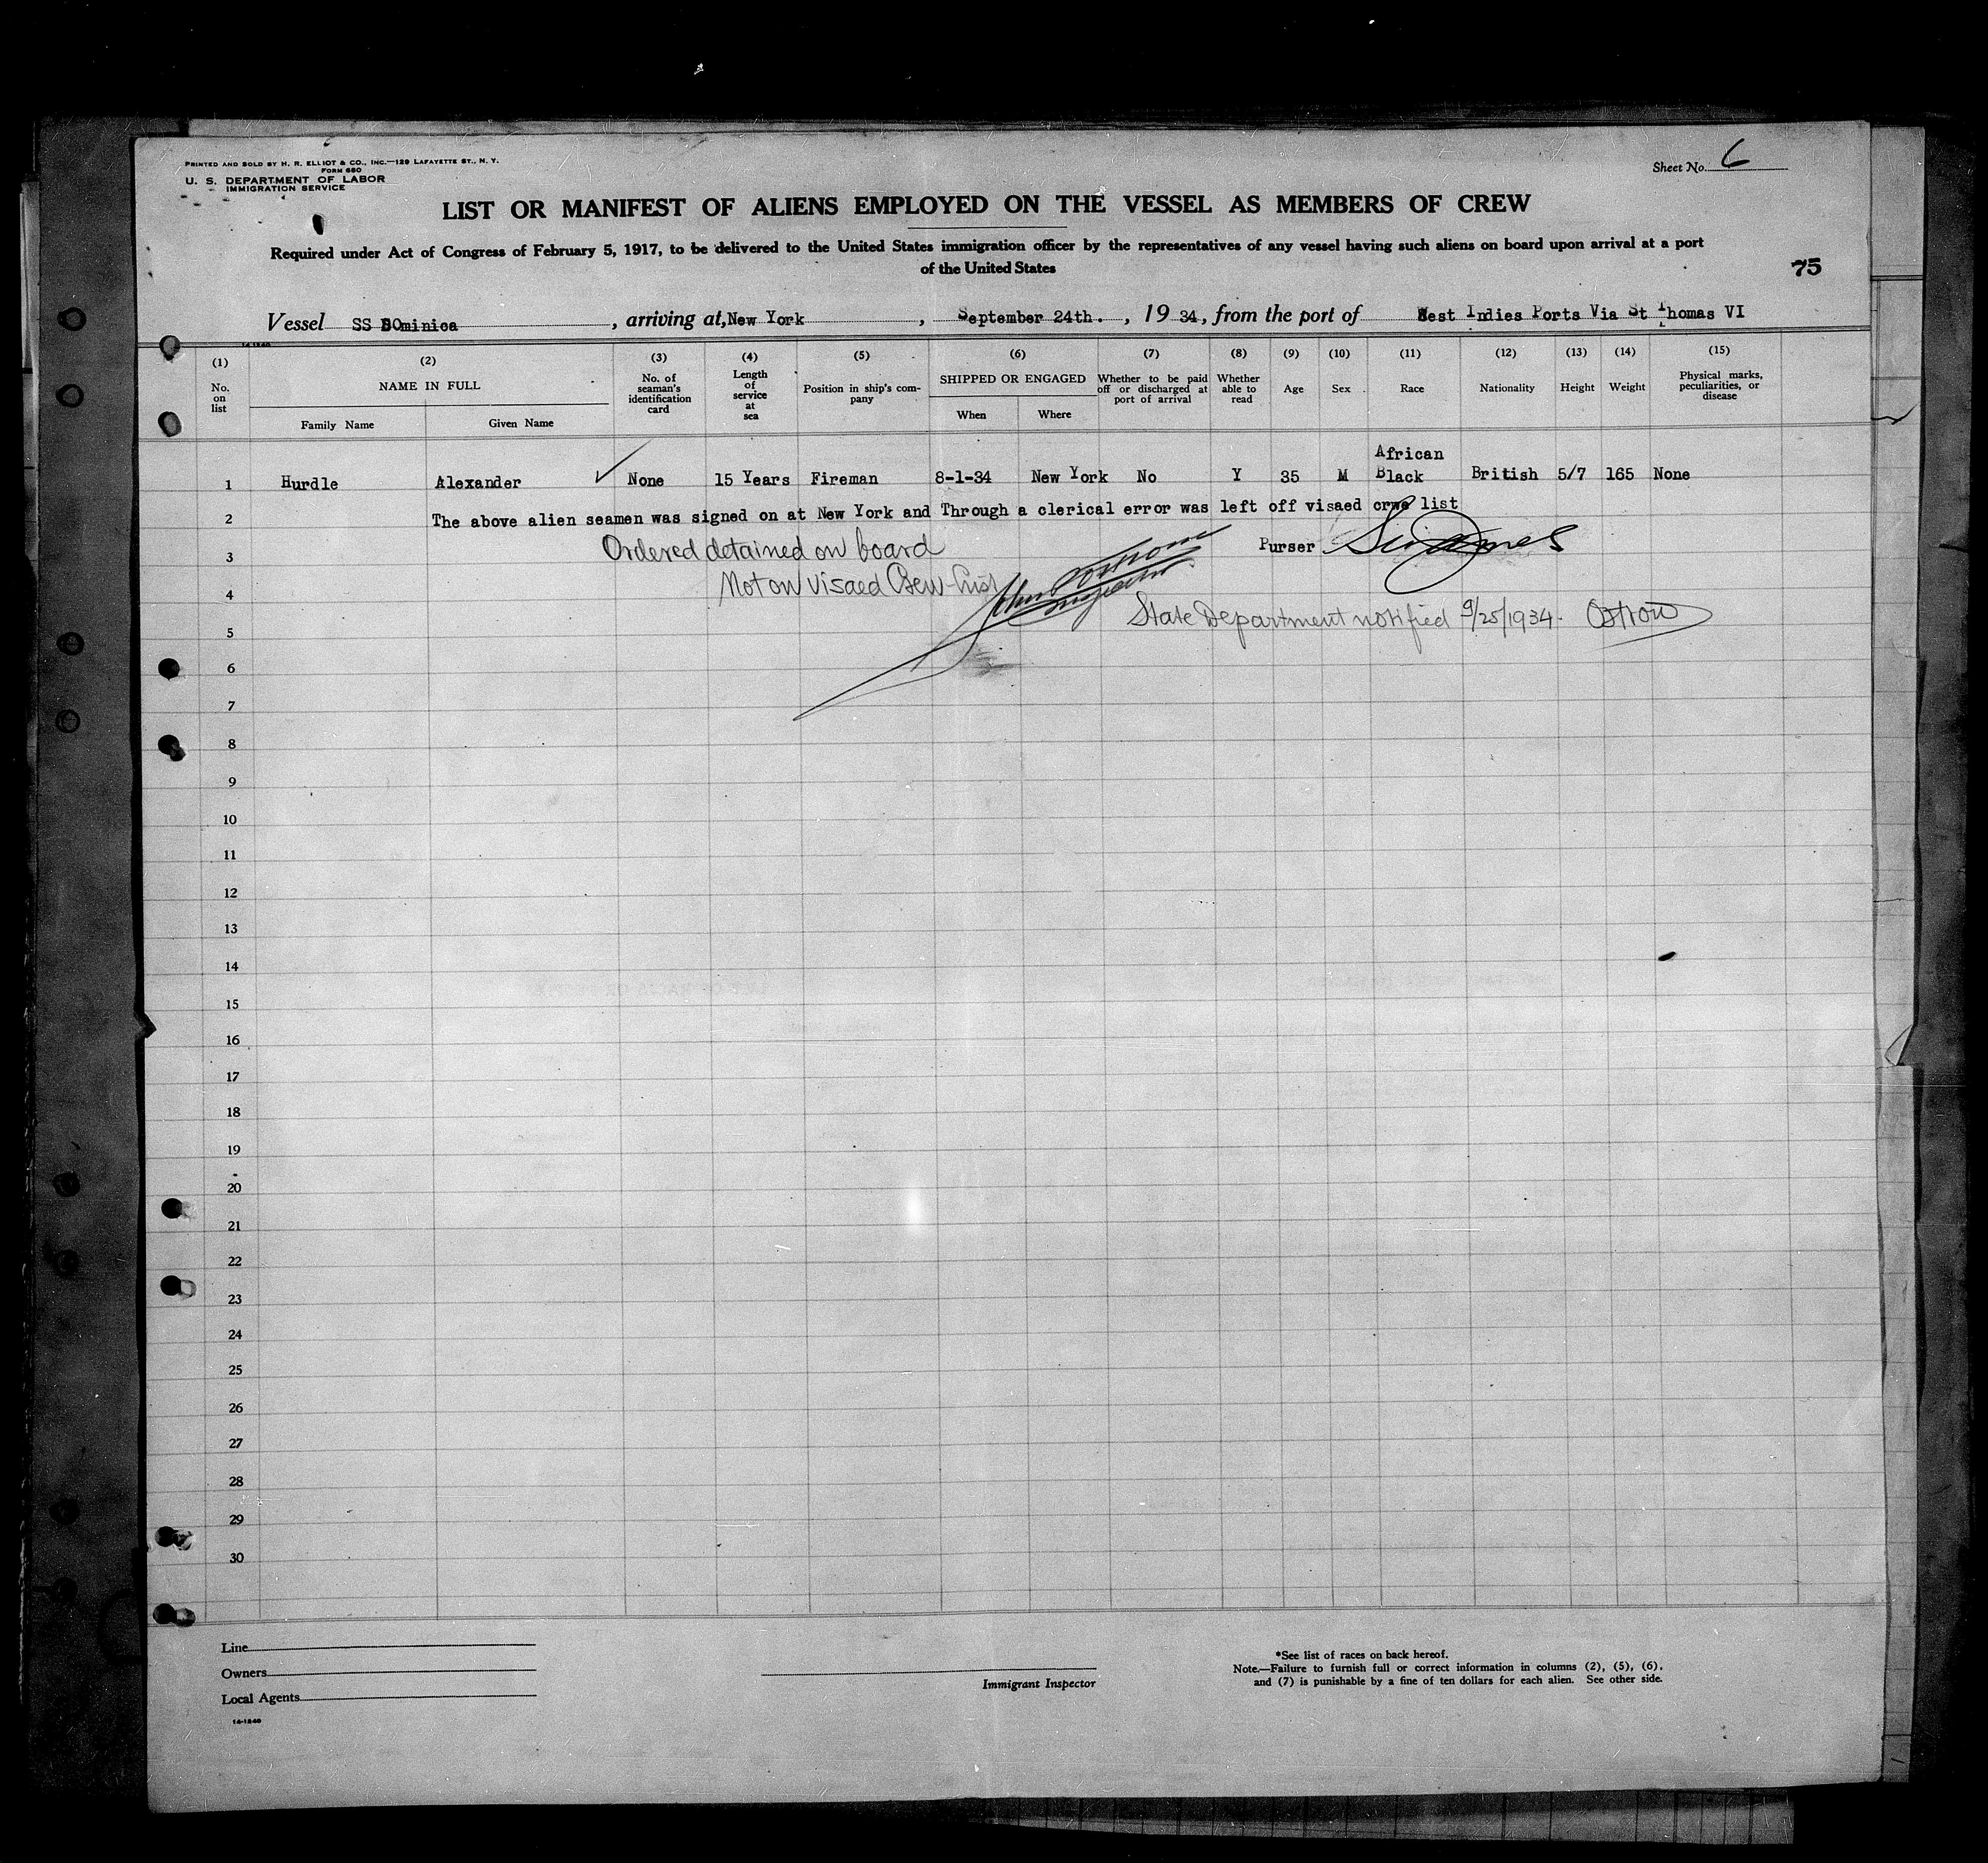 PRINTED AND SOLD BY H. R. ELLIOT & CO., INC.—129 LAFAYETTE ST., N. Y.
FORM 680
U. S. DEPARTMENT OF LABOR
IMMIGRATION SERVICE
Sheet No. 6
LIST OR MANIFEST OF ALIENS EMPLOYED ON THE VESSEL AS MEMBERS OF CREW
Required under Act of Congress of February 5, 1917, to be delivered to the United States immigration officer by the representatives of any vessel having such aliens on board upon arrival at a port
of the United States
75
Vessel SS DOminica, arriving at, New York, September 24th., 1934, from the port of West Indies Ports Via St Thomas VI
(1) (2) (3) (4) (5) (6) (7) (8) (9) (10) (11) (12) (13) (14) (15)
No. on list
NAME IN FULL
Family Name Given Name
No. of seaman's identification card
Length of service at sea
Position in ship's company
SHIPPED OR ENGAGED
When Where
Whether to be paid off or discharged at port of arrival
Whether able to read
Age
Sex
Race
Nationality
Height
Weight
Physical marks, peculiarities, or disease
1 Hurdle Alexander ✓ None 15 Years Fireman 8-1-34 New York No Y 35 M African Black British 5/7 165 None
2 The above alien seamen was signed on at New York and Through a clerical error was left off visaed crwe list
3 Ordered detained on board Purser
4 Not on visaed Crew List
Inspector
5 State Department notified 9/25/1934. Ostrow
6
7
8
9
10
11
12
13
14
15
16
17
18
19
20
21
22
23
24
25
26
27
28
29
30
Line
Owners
Local Agents
14-1240
Immigrant Inspector
*See list of races on back hereof.
Note.—Failure to furnish full or correct information in columns (2), (5), (6),
and (7) is punishable by a fine of ten dollars for each alien. See other side.